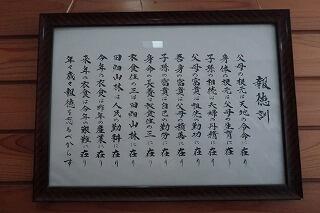 報徳訓
父母の根元は天地の令命に在り
身体の根元は父母の生育に在り
子孫の相続は夫婦の丹精に在り
父母の富貴は祖先の勤功に在り
吾身の富貴は父母の積善に在り
子孫の富貴は自己の勤労に在り
身命の長養は衣食住の三に在り
衣食住の三は田畑山林に在り
田畑山林は人民の勤耕に在り
今年の衣食は昨年の産業に在り
来年の衣食は今年の艱難に在り
年々歳々報徳を忘るべからず